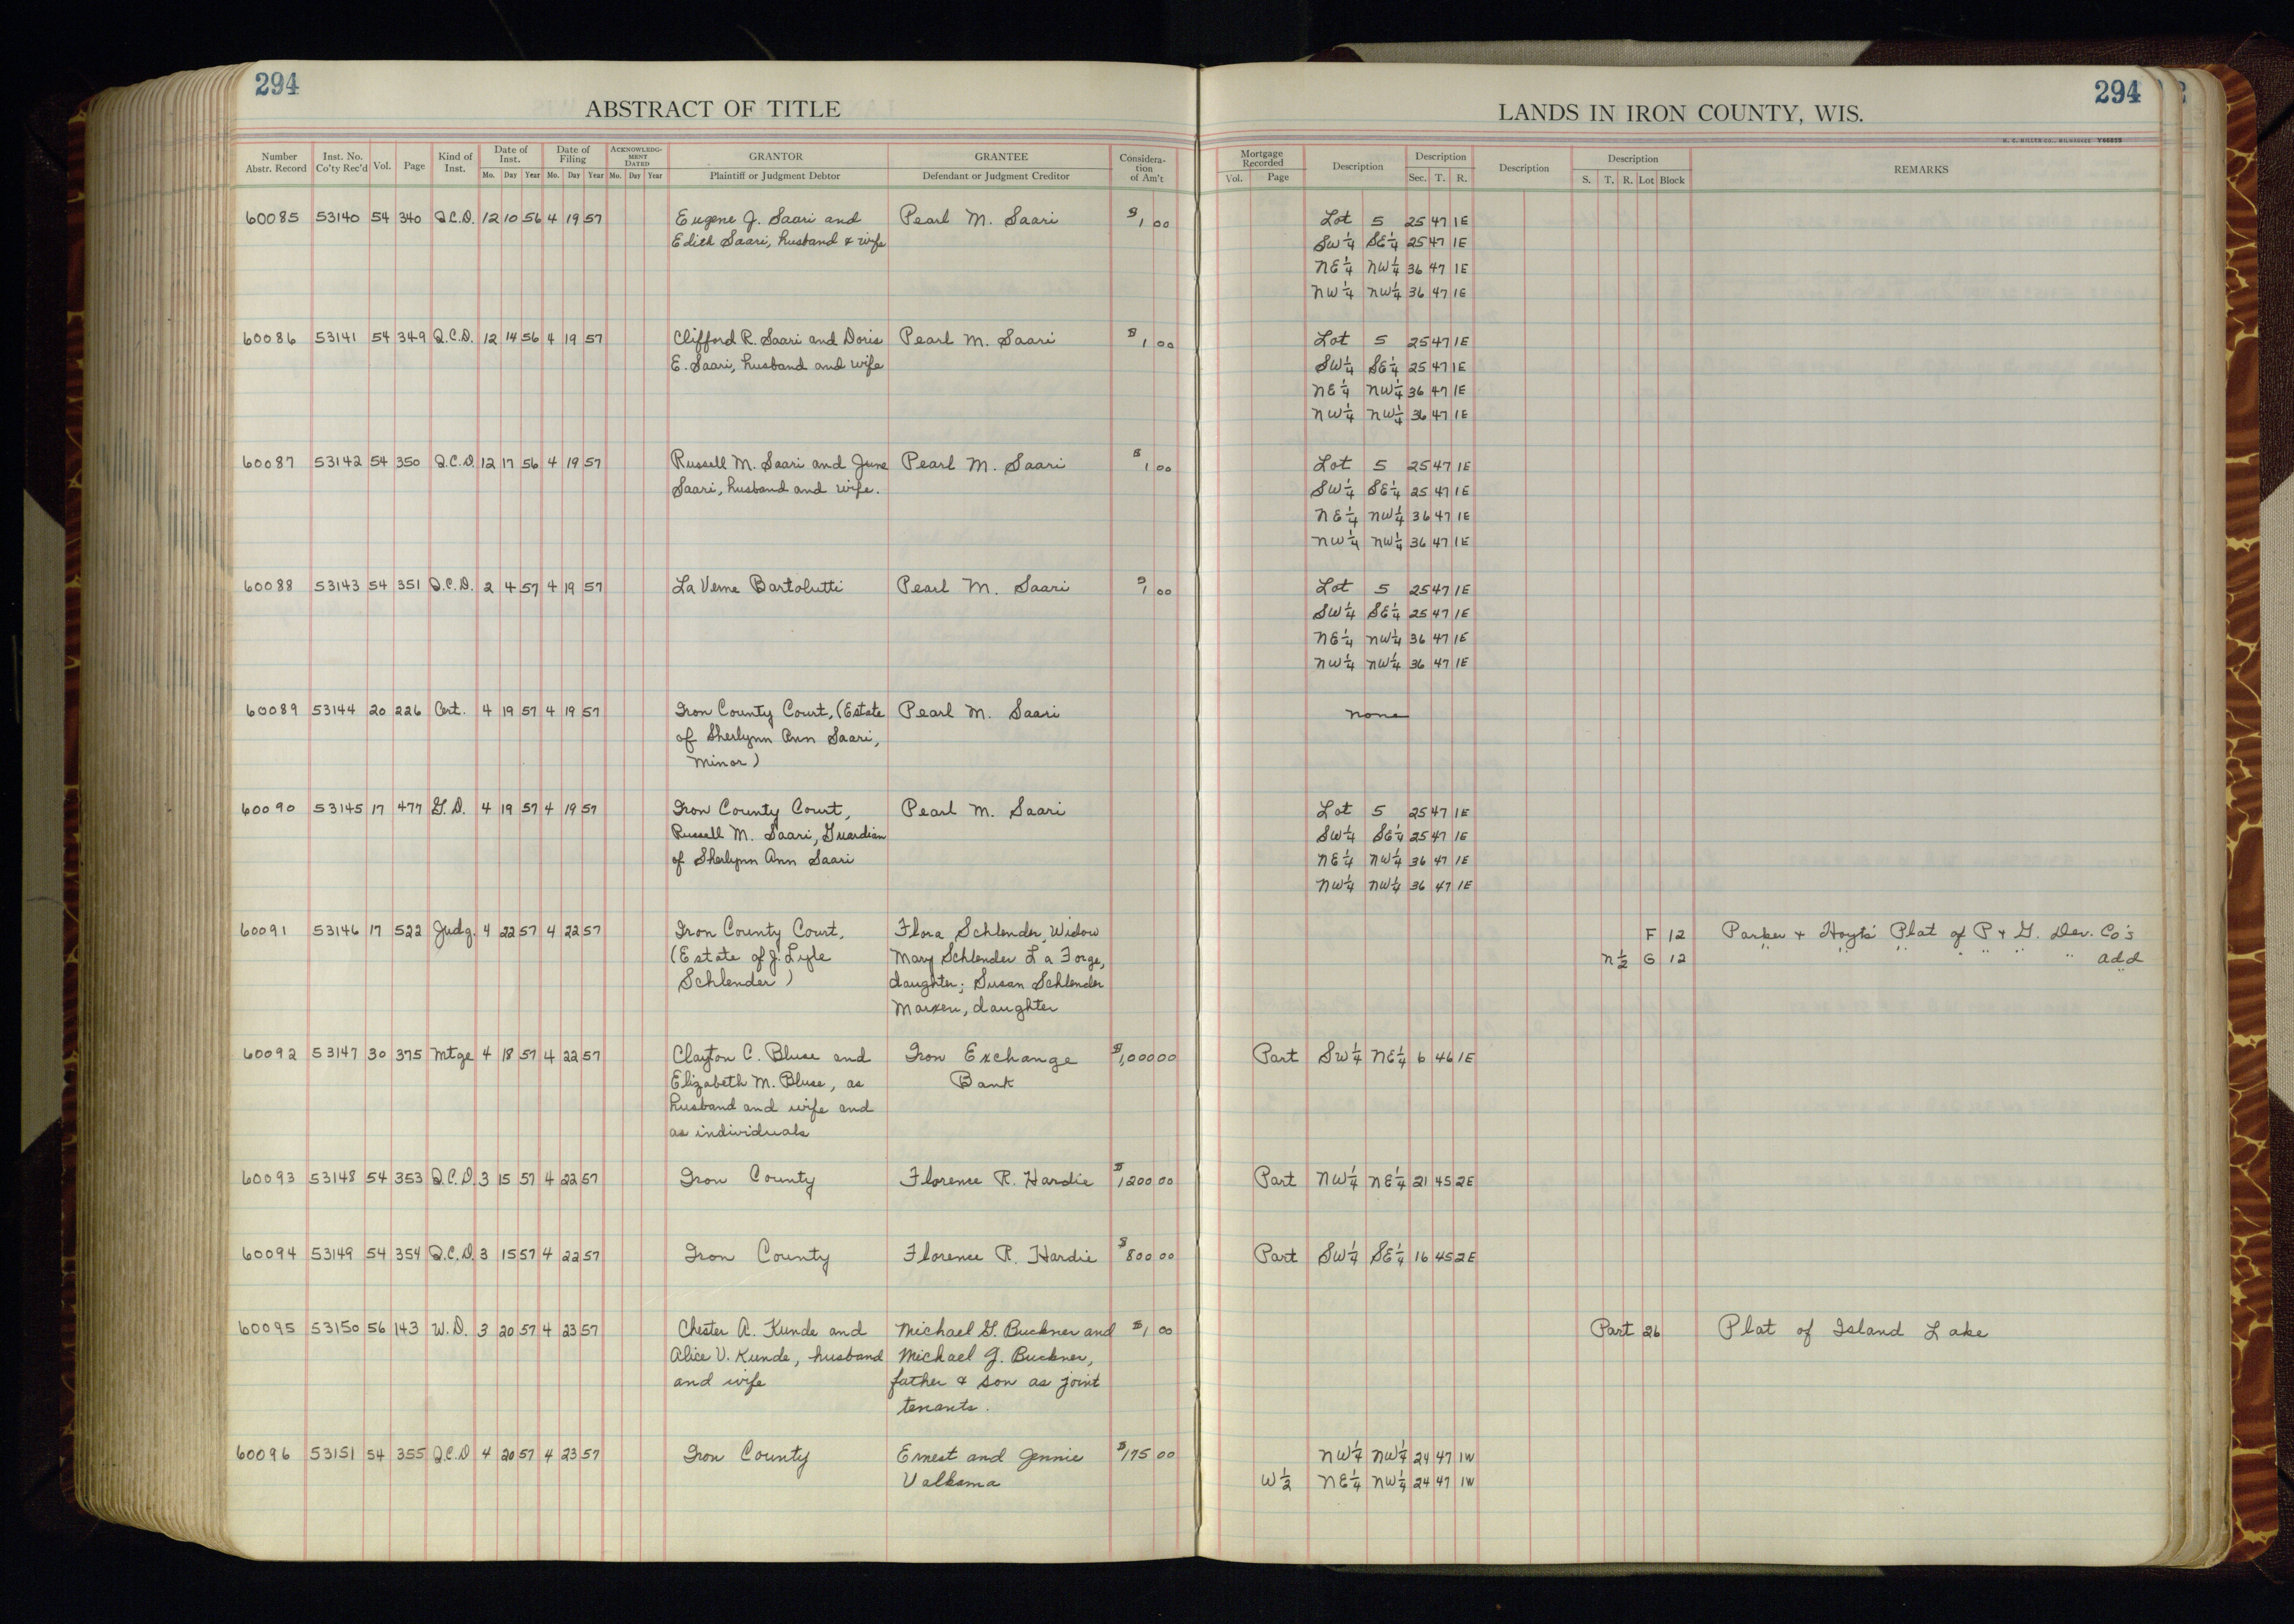 294
ABSTRACT OF TITLE
Number Abstr. Record Inst. No. Co'ty Rec'd Vol. Page Kind of Inst. Date of Inst. Mo. Day Year Date of Filing Mo. Day Year ACKNOWLEDG-MENT DATED Mo. Day Year GRANTOR Plaintiff or Judgment Debtor GRANTEE Defendant or Judgment Creditor Considera-tion of Am't
294
LANDS IN IRON COUNTY, WIS.
H. C. MILLER CO., MILWAUKEE Y66855
Mortgage Recorded Vol. Page Description Description Sec. T. R. Description Description S. T. R. Lot Block REMARKS
60085 53140 54 340 Q.C.D. 12 10 56 4 19 57 Eugene J. Saari and Pearl M. Saari $1 00 Lot 5 25 47 1E
Edith Saari, husband & wife SW¼ SE¼ 25 47 1E
NE¼ NW¼ 36 47 1E
NW¼ NW¼ 36 47 1E
60086 53141 54 349 Q.C.D. 12 14 56 4 19 57 Clifford R. Saari and Doris Pearl M. Saari $1 00 Lot 5 25 47 1E
E. Saari, husband and wife SW¼ SE¼ 25 47 1E
NE¼ NW¼ 36 47 1E
NW¼ NW¼ 36 47 1E
60087 53142 54 350 Q.C.D. 12 17 56 4 19 57 Russell M. Saari and June Pearl M. Saari $1 00 Lot 5 25 47 1E
Saari, husband and wife. SW¼ SE¼ 25 47 1E
NE¼ NW¼ 36 47 1E
NW¼ NW¼ 36 47 1E
60088 53143 54 351 Q.C.D. 2 4 57 4 19 57 La Verne Bartolutti Pearl M. Saari $1 00 Lot 5 25 47 1E
SW¼ SE¼ 25 47 1E
NE¼ NW¼ 36 47 1E
NW¼ NW¼ 36 47 1E
60089 53144 20 226 Cert. 4 19 57 4 19 57 Iron County Court, (Estate Pearl M. Saari none
of Sherlynn Ann Saari,
Minor)
60090 53145 17 477 G.D. 4 19 57 4 19 57 Iron County Court, Pearl M. Saari Lot 5 25 47 1E
Russell M. Saari, Guardian SW¼ SE¼ 25 47 1E
of Sherlynn Ann Saari NE¼ NW¼ 36 47 1E
NW¼ NW¼ 36 47 1E
60091 53146 17 522 Judg. 4 22 57 4 22 57 Iron County Court, Flora Schlender, Widow F 12 Parker & Hoyts' Plat of P & G. Dev. Co's
(Estate of J. Lyle Mary Schlender La Forge, N½ G 12 " " " " " " " add
Schlender) daughter; Susan Schlender
daughter
60092 53147 30 375 Mtge 4 18 57 4 22 57 Clayton C. Bluse and Iron Exchange $1,000 00 Part SW¼ NE¼ 6 46 1E
Elizabeth M. Bluse, as Bank
husband and wife and
as individuals
60093 53148 54 353 Q.C.D. 3 15 57 4 22 57 Iron County Florence R. Hardie $1200 00 Part NW¼ NE¼ 21 45 2E
60094 53149 54 354 Q.C.D. 3 15 57 4 22 57 Iron County Florence R. Hardie $800 00 Part SW¼ SE¼ 16 45 2E
60095 53150 56 143 W.D. 3 20 57 4 23 57 Chester A. Kunde and Michael G. Buckner and $1 00 Part 26 Plat of Island Lake
Alice V. Kunde, husband Michael J. Buckner,
and wife father & son as joint
tenants.
60096 53151 54 355 Q.C.D 4 20 57 4 23 57 Iron County Ernest and Jennie $175 00 NW¼ NW¼ 24 47 1W
Valkama W½ NE¼ NW¼ 24 47 1W